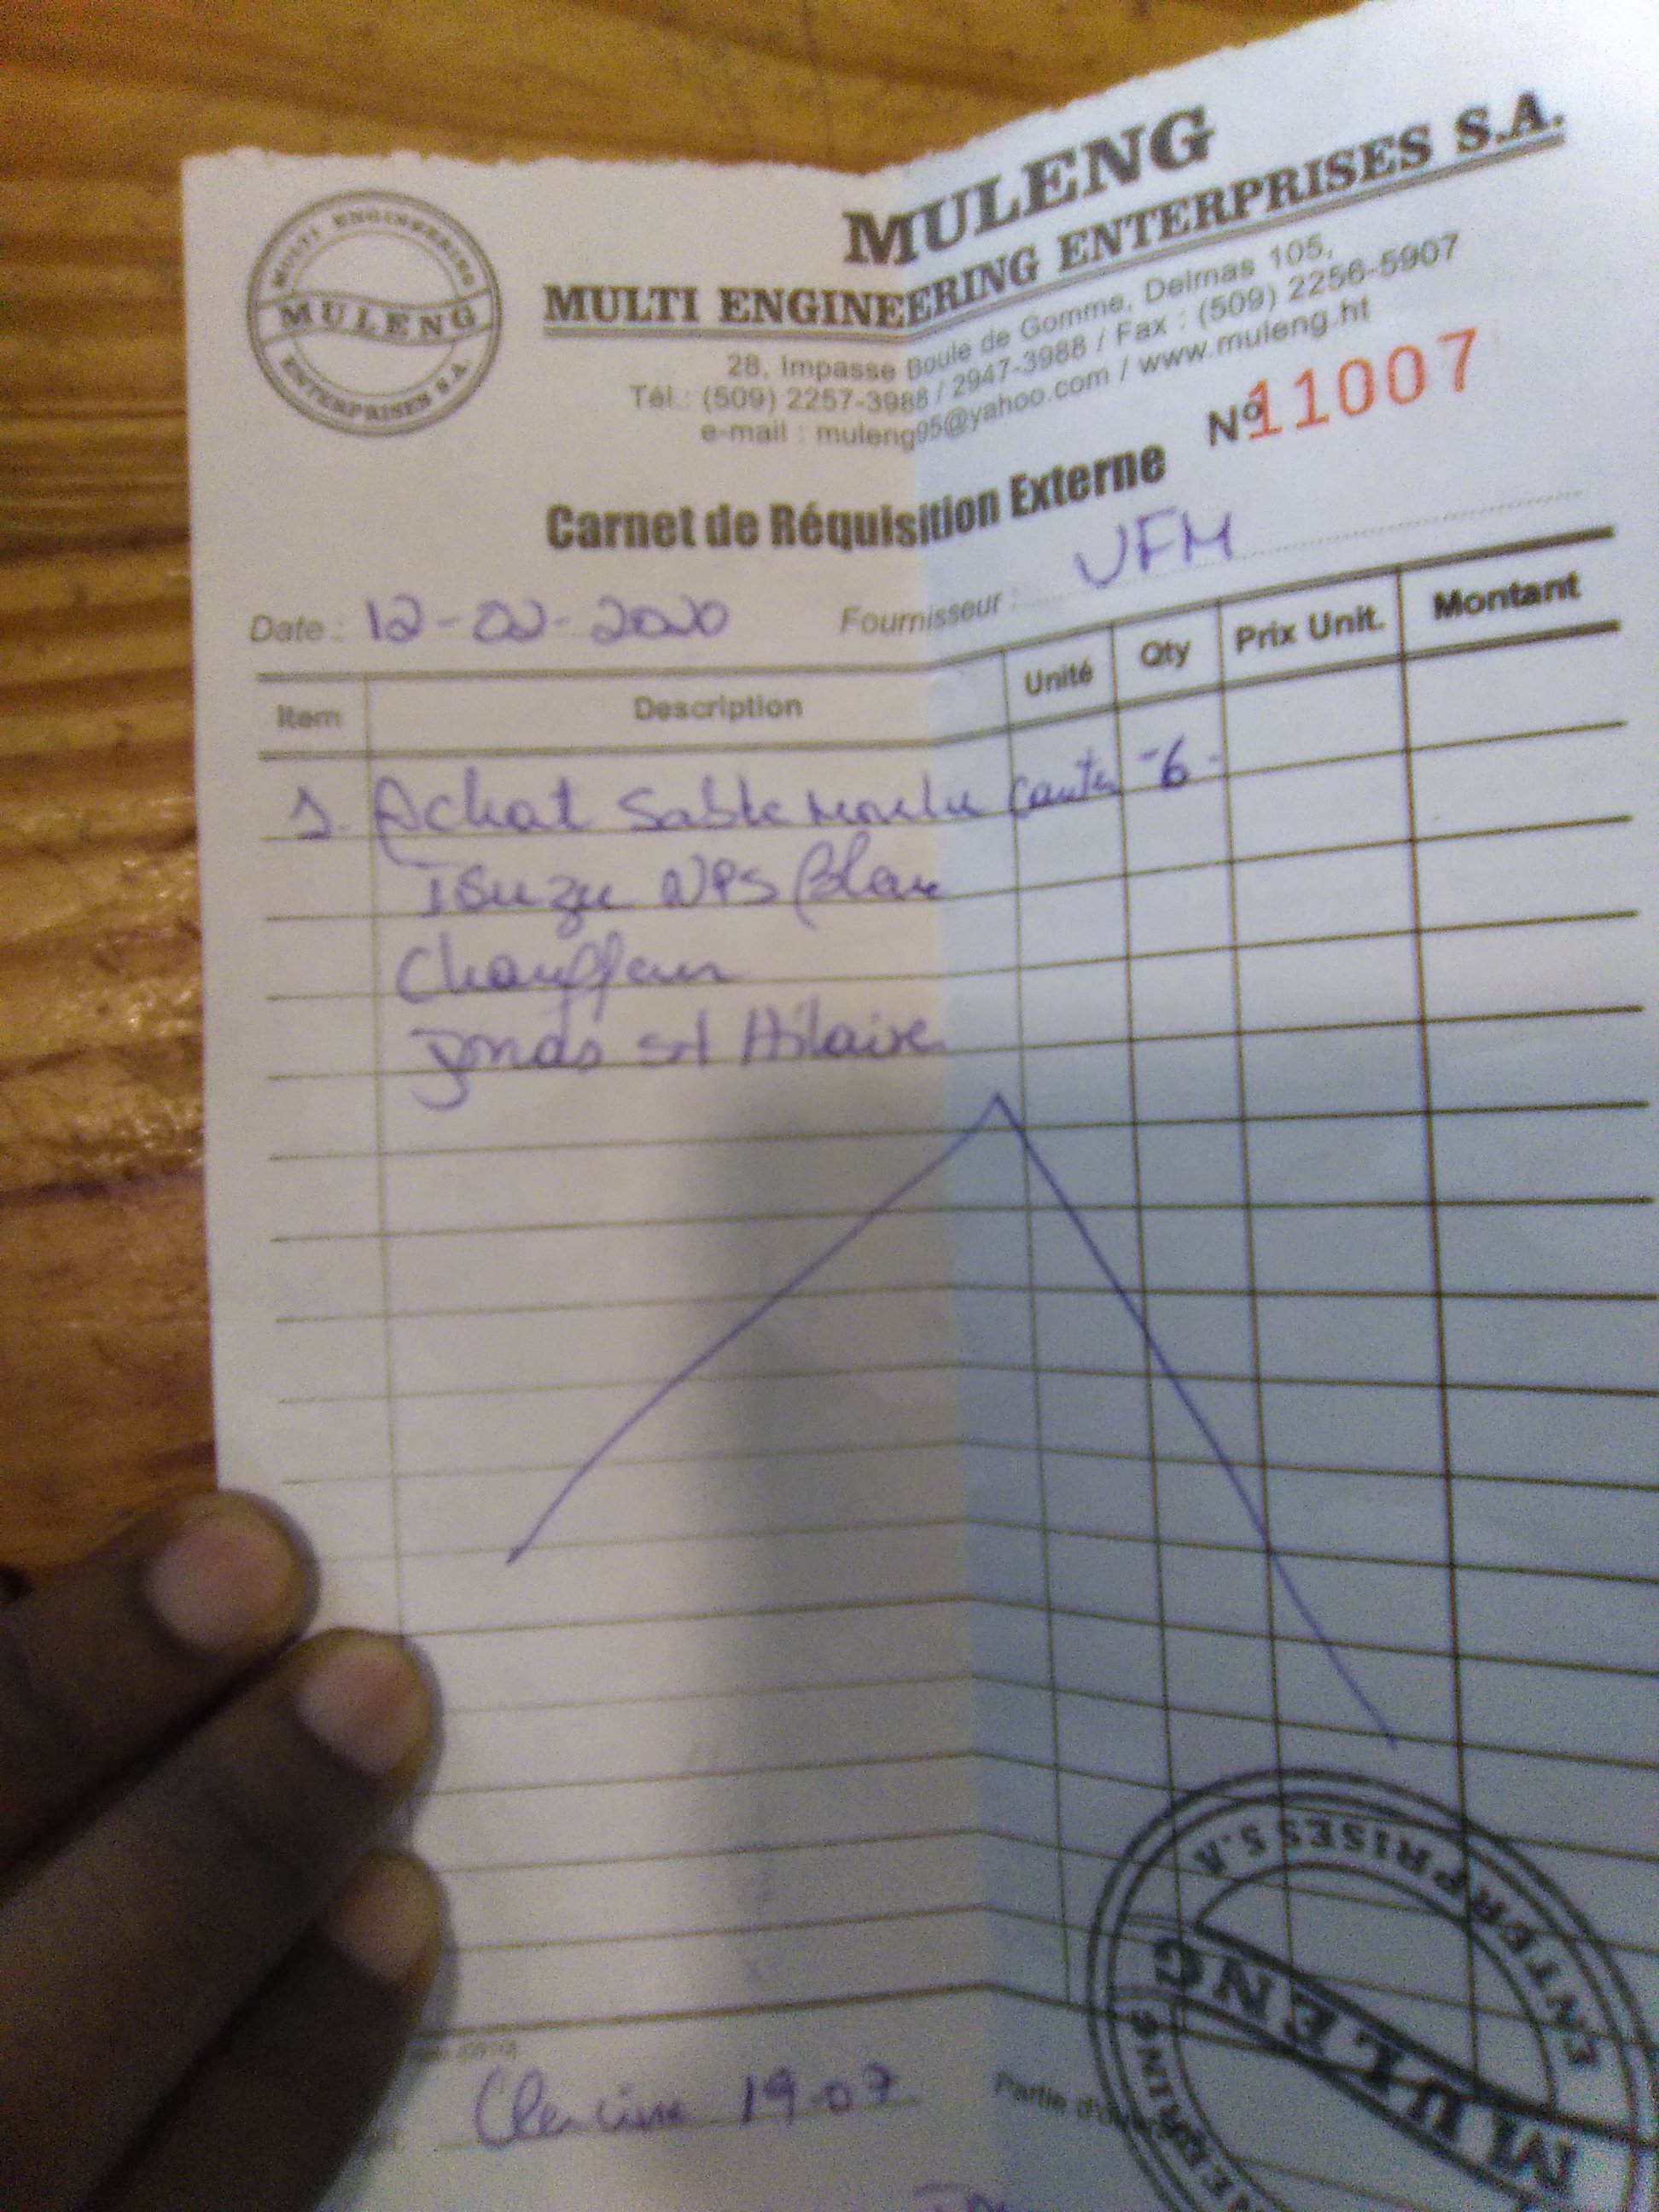 MULTI ENGINEERING
MULENG
ENTERPRISES S.A.
MULENG
MULTI ENGINEERING ENTERPRISES S.A.
28, Impasse Boule de Gomme, Delmas 105,
Tél.: (509) 2257-3988 / 2947-3988 / Fax : (509) 2256-5907
e-mail : muleng95@yahoo.com / www.muleng.ht
Nº 11007
Carnet de Réquisition Externe
Date : 12-02-2020 Fournisseur : UFM
Item Description Unité Qty Prix Unit. Montant
1. Achat Sable Moulu -6-
Isuzu NPS Blanc
Chauffeur
Jonas St Hilaire
19-07
Partie
ENTERPRISES S.A
MULENG